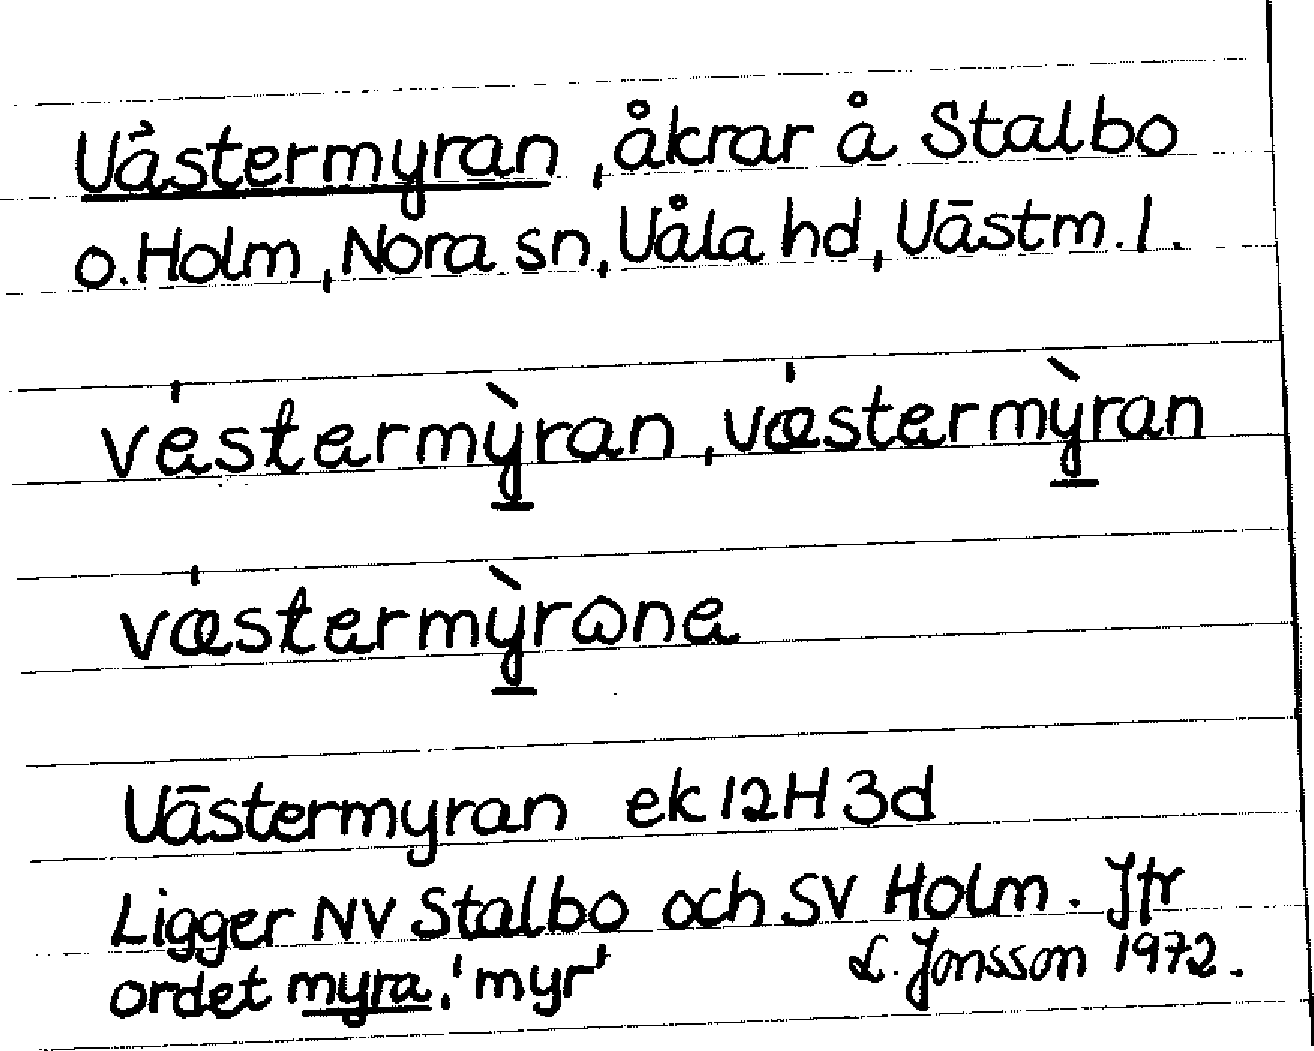 Västermyran, åkrar å Stalbo
o. Holm, Nora sn, Våla hd, Västm. l.
vestermỳ̲ran, væstermỳ̲ran
væstermỳ̲rωne
Västermyran ek 12H 3d
Ligger NV Stalbo och SV Holm. Jfr
ordet myra, 'myr' L. Jonsson 1972.